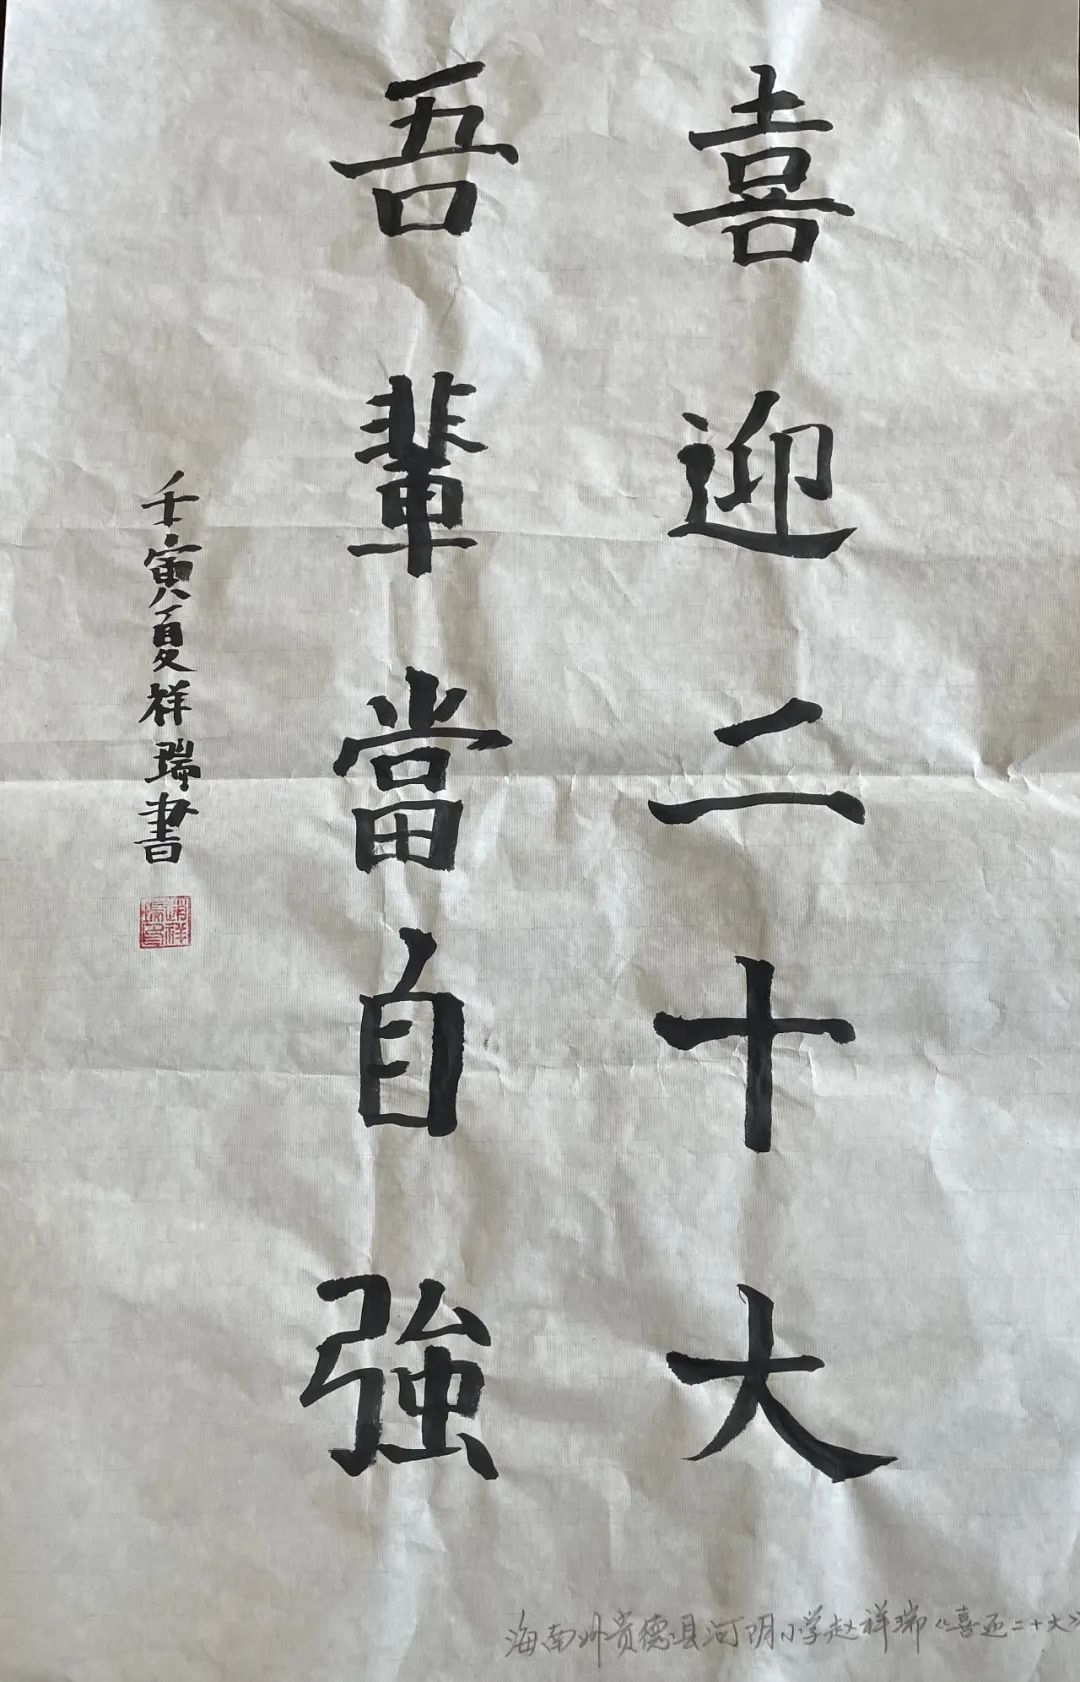 喜迎二十大
吾輩當自強
壬寅夏祥瑞書
趙祥瑞印
海南州贵德县河阴小学赵祥瑞《喜迎二十大》